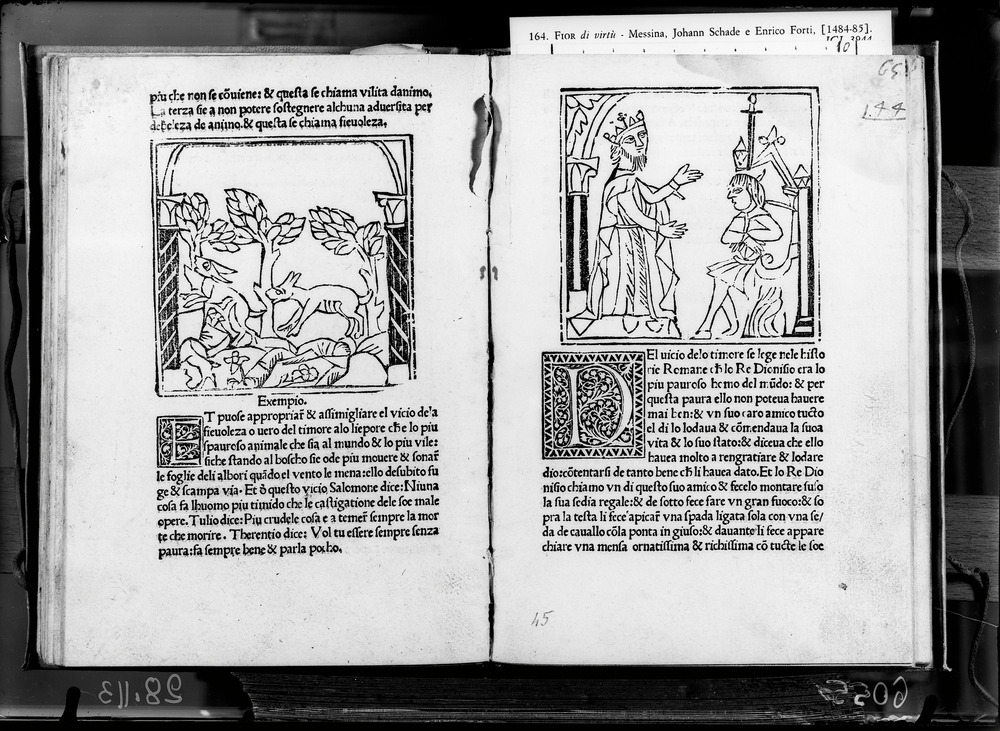 164. FIOR di virtù - Messina, Johann Schade e Enrico Forti, [1484-85].
IGI 3944
[6]
G5
144
piu che non se cōuiene: & questa se chiama vilita danimo.
La terza sie a non potere sostegnere alchuna aduersita per
debeleza de animo. & questa se chiama fieuoleza.
Exempio.
ET puose appropriar̄ & assimigliare el vicio dela
fieuoleza o uero del timore alo liepore ch̄ e lo piu
spauroso animale che sia al mundo & lo piu vile:
siche stando al boscho sie ode piu mouere & sonar̄
le foglie deli albori quādo el vento le mena: ello desubito fu
ge & scampa via. Et ō questo vicio Salomone dice: Niuna
cosa fa lhuomo piu timido che le castigatione dele soe male
opere. Tulio dice: Piu crudele cosa e a temer̄ sempre la mor
te che morire. Therentio dice: Vol tu essere sempre senza
paura: fa sempre bene & parla pocho.
DEl uicio delo timore se lege nele histo
rie Romane ch̄ lo Re Dionisio era lo
piu pauroso homo del mūdo: & per
questa paura ello non poteua hauere
mai ben: & vn suo caro amico tucto
el di lo lodaua & cōmendaua la suoa
vita & lo suo stato: & diceua che ello
hauea molto a rengratiare & lodare
dio: cōtentarsi de tanto bene ch̄ li hauea dato. Et lo Re Dio
nisio chiamo vn di questo suo amico & fecelo montare suso
la sua sedia regale: & de sotto fece fare vn gran fuoco: & so
pra la testa li fece apicar̄ vna spada ligata sola con vna se/
da de cauallo cōla ponta in giuso: & dauante li fece appare
chiare vna mensa ornatissima & richissima cō tucte le soe
45
28.113
6055